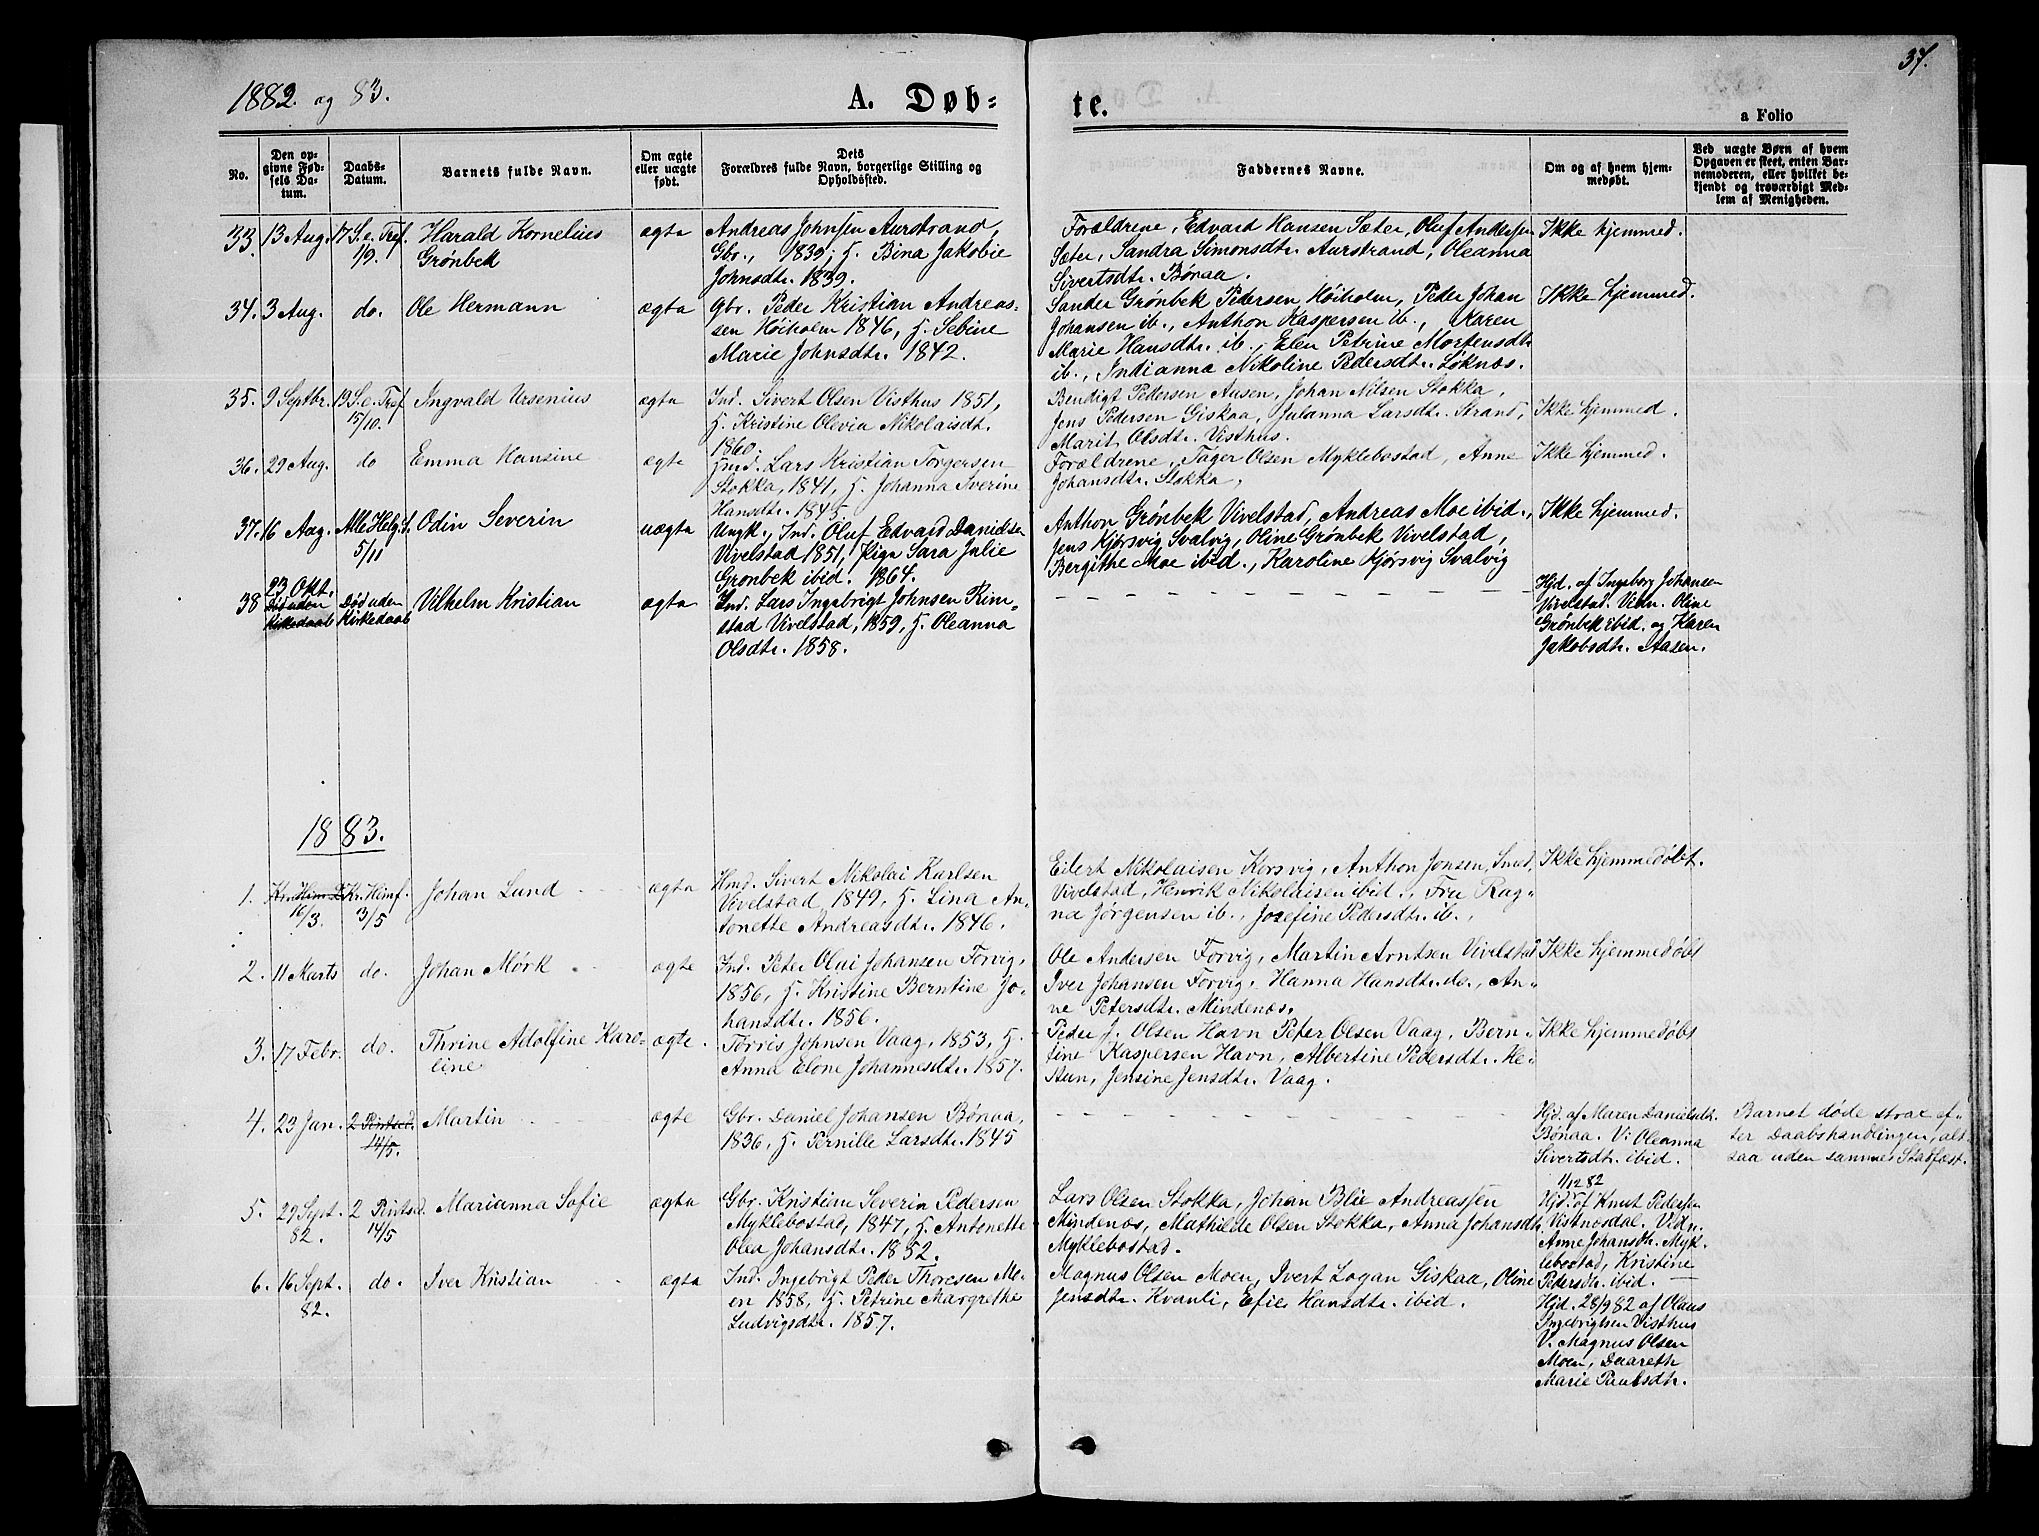 37.
1882. og 83.
A. Døb-
te.
a Folio
No.
Den op-
givne Fød-
sels Da-
tum.
Daabs-
Datum.
Barnets fulde Navn.
Om ægte
eller uægte
født.
Dets
Forældres fulde Navn, borgerlige Stilling og
Opholdssted.
Faddernes Navne.
Om og af hvem hjem-
medøbt.
Ved uægte Børn af hvem
Opgaven er skeet, enten Bar-
nemoderen, eller hvilket be-
kjendt og troværdigt Med-
lem af Menigheden.
33. 13 Aug. 17 S. e. Tref.
1/9.
Harald Kornelius
Grønbek
ægta
Andreas Johnsen Aurstrand,
Gbr., 1839; H. Bina Jakobie
Johnsdtr. 1839.
Forældrene, Edvard Hansen Sæter, Oluf Andersen
Sæter, Sandra Simonsdtr. Aurstrand, Oleanna
Sivertsdtr. Bønaa.
Ikke hjemmed.
34. 3 Aug. do. Ole Hermann ægta
Gbr. Peder Kristian Andreas-
sen Høiholm 1846, H. Sebine
Marie Johnsdtr. 1842.
Sander Grønbek Pedersen Høiholm, Peder Johan
Johansen ib., Anthon Kaspersen ib., Karen
Marie Hansdtr. ib., Elen Petrine Mortensdtr.
ib., Indianna Nikoline Pedersdtr. Søknæs.
Ikke hjemmed.
35. 9 Septbr. 19 S. e. Tref
15/10.
Ingvald Ursenius ægta
Ind. Sivert Olsen Visthus 1851,
H. Kristine Olevia Nikolaisdt.
1860.
Bendigt Pedersen Ausen, Johan Nilsen Stokka,
Jens Pedersen Giskaa, Julianna Larsdtr. Strand,
Marit Olsdtr. Visthus.
Ikke hjemmed.
36. 29 Aug. do Emma Hansine ægte
Hmd. Lars Kristian Torgersen
Stokka, 1841, H. Johanna Iverine
Hansdtr. 1845
Forældrene, Tager Olsen Myklebostad, Anne
Johansdtr. Stokka,
Ikke hjemmed.
37. 16 Aug. Alle Helg. f.
5/11
Odin Severin uægta
Ungk., Ind. Oluf Edvard Danielsen
Vivelstad 1851, Pige Sara Julie
Grønbek ibid. 1864.
Anthon Grønbek Vivelstad, Andreas Moe ibid.,
Jens Kjørsvig Svalvig, Oline Grønbek Vivelstad,
Bergithe Moe ibid., Karoline Kjørsvig Svalvig
Ikke hjemmed.
38 23 Okt.
Død uden
Kirkedaab
Død uden
Kirkedaab
Vilhelm Kristian ægta
Ind. Lars Ingebrigt Johnsen Rim-
stad Vivelstad, 1859, H. Oleanna
Olsdtr. 1858.
Hjd. af Ingeborg Johansen
Vivelstad. Vidn. Oline
Grønbek ibid. og Karen
Jakobsdtr. Aasen.
1883.
1. 16/3. Kr. Himf.
3/5
Johan Lund ægta
Hmd. Sivert Nikolai Karlsen
Vivelstad, 1849, H. Lina An-
tonette Andreasdtr. 1846.
Eilert Nikolaisen Korsvig, Anthon Jonsen, Smed,
Vivelstad, Henrik Nikolaisen ibid., Fru Rag-
na Jørgensen ib., Josefine Pedersdtr. ib.,
Ikke hjemmedøbt.
2. 11 Marts do. Johan Mørk ægte
Ind. Peter Olai Johansen Forvig,
1856, H. Kristine Berntine Jo-
hansdtr. 1856.
Ole Andersen Forvig, Martin Arntsen Vivelstad
Iver Johansen Forvig, Hanna Hansdtr. do., An-
ne Petersdtr. Mindenæs.
Ikke hjemmedøbt
3. 17 Febr. do. Thrine Adolfine Karo-
line
ægte.
Torris Johnsen Vaag, 1853, H.
Anna Elone Johannesdtr. 1857.
Peder J. Olsen Havn Peter Olsen Vaag, Bern-
tine Kaspersen Havn, Albertine Pedersdtr. Re-
Jensine Jensdtr. Vaag.
Ikke hjemmedøbt
4. 23 Jan. 2 Pintsed.
14/5.
Martin ægte
Gbr. Daniel Johansen Bønaa,
1836, H. Pernille Larsdtr. 1845
Hjd. af Maren Danielsdtr.
Bønaa. V. Oleanna
Sivertsdtr. ibid.
Barnet døde strax ef-
ter Daabshandlingen, alt-
saa uden sammes Stadfæst.
5. 29 Sept.
82.
2 Pintsed.
14/5
Marianna Sofie ægta
Gbr. Kristian Severin Pedersen
Myklebostad, 1847, H. Antonette
Olea Johansdtr. 1852.
Lars Olsen Stokka, Johan Blix Andreassen
Mindenæs, Mathilde Olsen Stokka, Anna Johansdt.
Myklebostad.
1/12 82
Hjd. af Knut Pedersen
Vistnesdal. Vidn.
Anne Johansdtr. Myk-
lebostad, Kristine
Pedersdtr. ibid.
6. 16 Sept.
82.
do. Iver Kristian ægta
Ind. Ingebrigt Peder Thoresen Mo-
en 1858, H. Petrine Margrethe
Ludvigsdtr. 1857.
Magnus Olsen Moen, Ivert Logan Giskaa, Oline
Jensdtr. Kvanli, Efie Hansdtr. ibid.
Hjd. 28/9 82 af Olaus
Ingebrigtsen Visthus
V. Magnus Olsen
Moen, Daareth
Marie Paulsdtr.